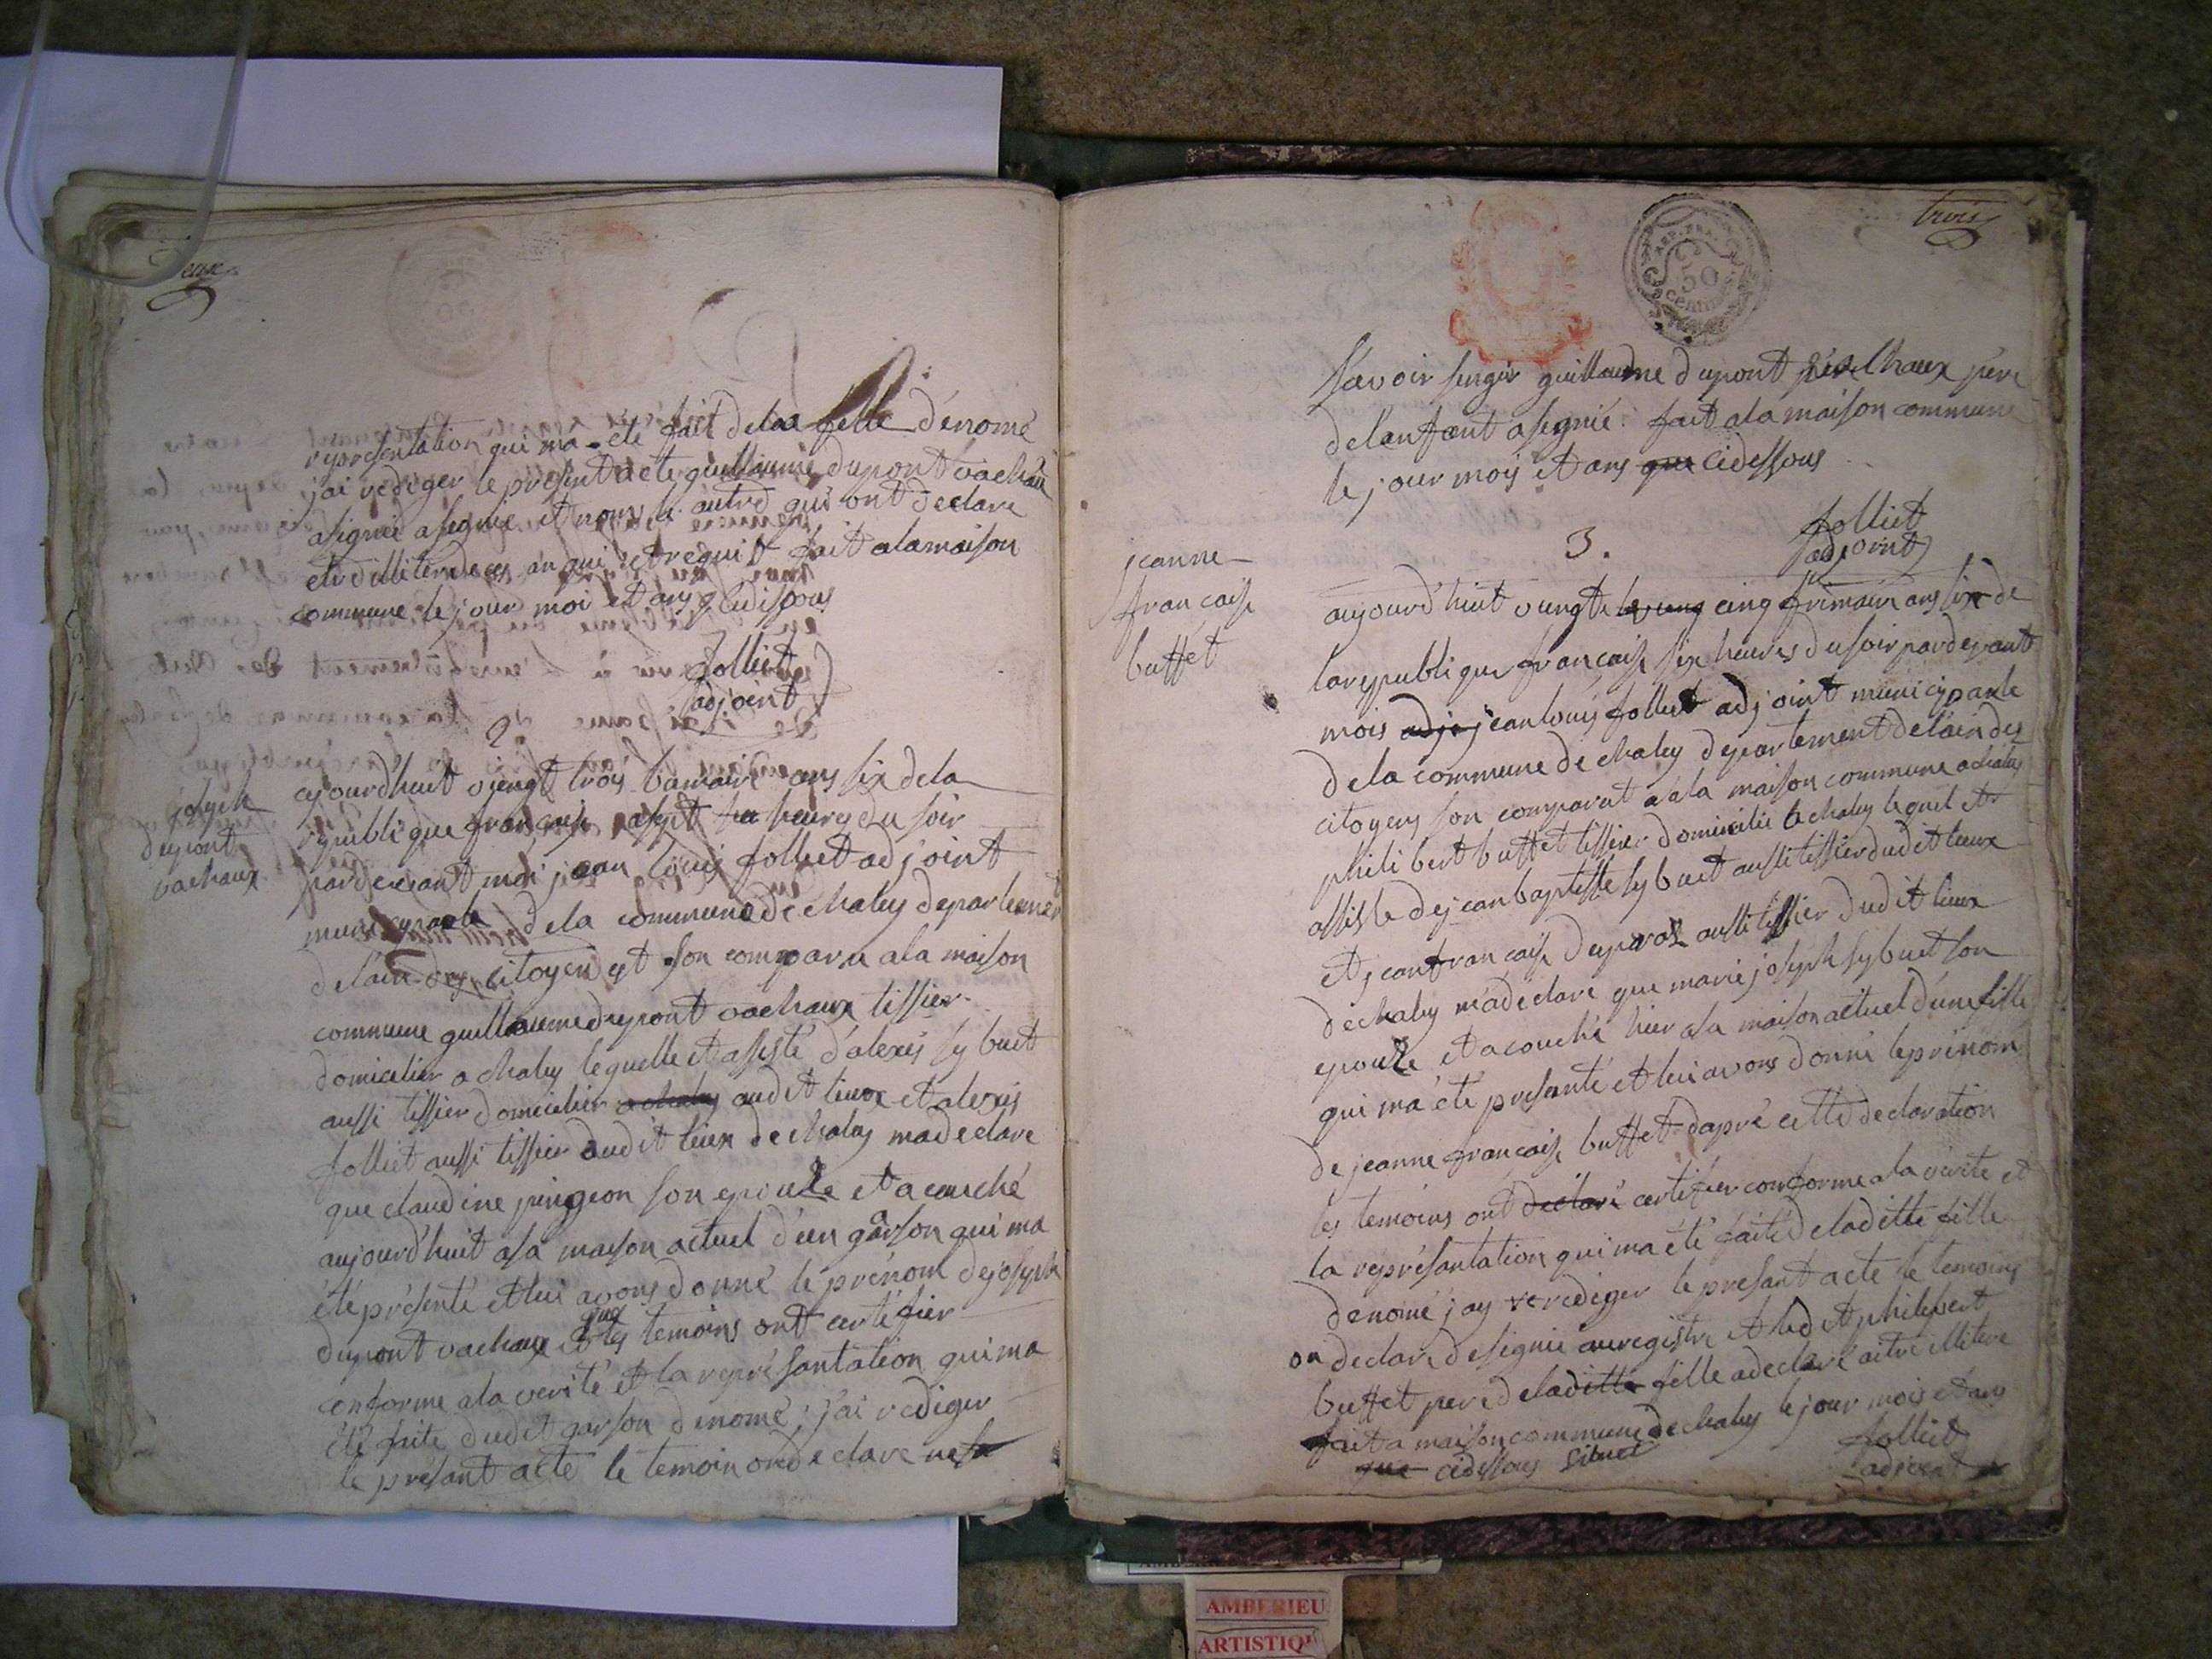 Deux
representation qui ma été fait de la fille dénomé
j'ai rediger le présent acte guillaume dupont vachau
asignié et nom le autre qui ont declare
an qui et requit fait a la maison
commune le jour moi et ans
folliet
adjoint
2
joseph
dupont
vachaux
ajourdhuit viengt trois bamaire ans six de la
republique française a sept heures du soir
pardevant moi jean louis folliet adjoint
municipale de la commune de chaley departement
de lain des citoyen est son comparu a la maison
commune guillaume dupont vachaux tissier
domicilier a chaley lequelle et assisté d'alexis sybuet
aussi tissier domicilier a chaley audit lieux et alexis
folliet aussi tissier dudit lieux de chaley ma declare
que claudine pingeon son epouse et acouché
aujourd'huit a sa maison actuel d'un garson qui ma
été présenté et lui avons donné le prénom de joseph
dupont vachaux et les temoins ont certifier
conforme a la verité et la représantation qui ma
été faite dudit garson denomé j'ai rediger
le présant acte le temoin on declare ne sa
trois
REP. FRA.
50
centimes
savoir singnir guillaume dupont vachaux père
de lanfant asignié fait a la maison commune
le jour mois et ans que cidessous
folliet
adjoint
3.
jeanne
francaise
buffet
aujourd'huit vungt cinq frimaire ans six de
la republique française six heures du soir pardevant
mois adj jean louis folliet adjoint municipale
de la commune de chaley departement de lain des
citoyens son comparut a la maison commune a chaley
philibert buffet tissier domicilié a chaley lequel et
assiste de jean baptiste sybuet aussi tissier dudit lieux
et jean francaise aussi tissier dudit lieux
de chaley m'a déclaré que marie joseph sybuet son
epouse et acouché hier a sa maison actuel d'une fille
qui ma été presanté et lui avons donné le prénom
de jeanne française buffet dapré cette declaration
les temoins ont declaré certifier conforme a la vérité et
la représantation qui ma été faite de laditte fille
denomé jay rerediger le presant acte le temoins
on declare de signié au registre et ledit philibert
buffet pere de laditte fille a declaré aitre illitere
fait a maison commune de chaley le jour mois et ans
que cidessous Sibuet
folliet
adjoint
AMBERIEU
ARTISTIQU